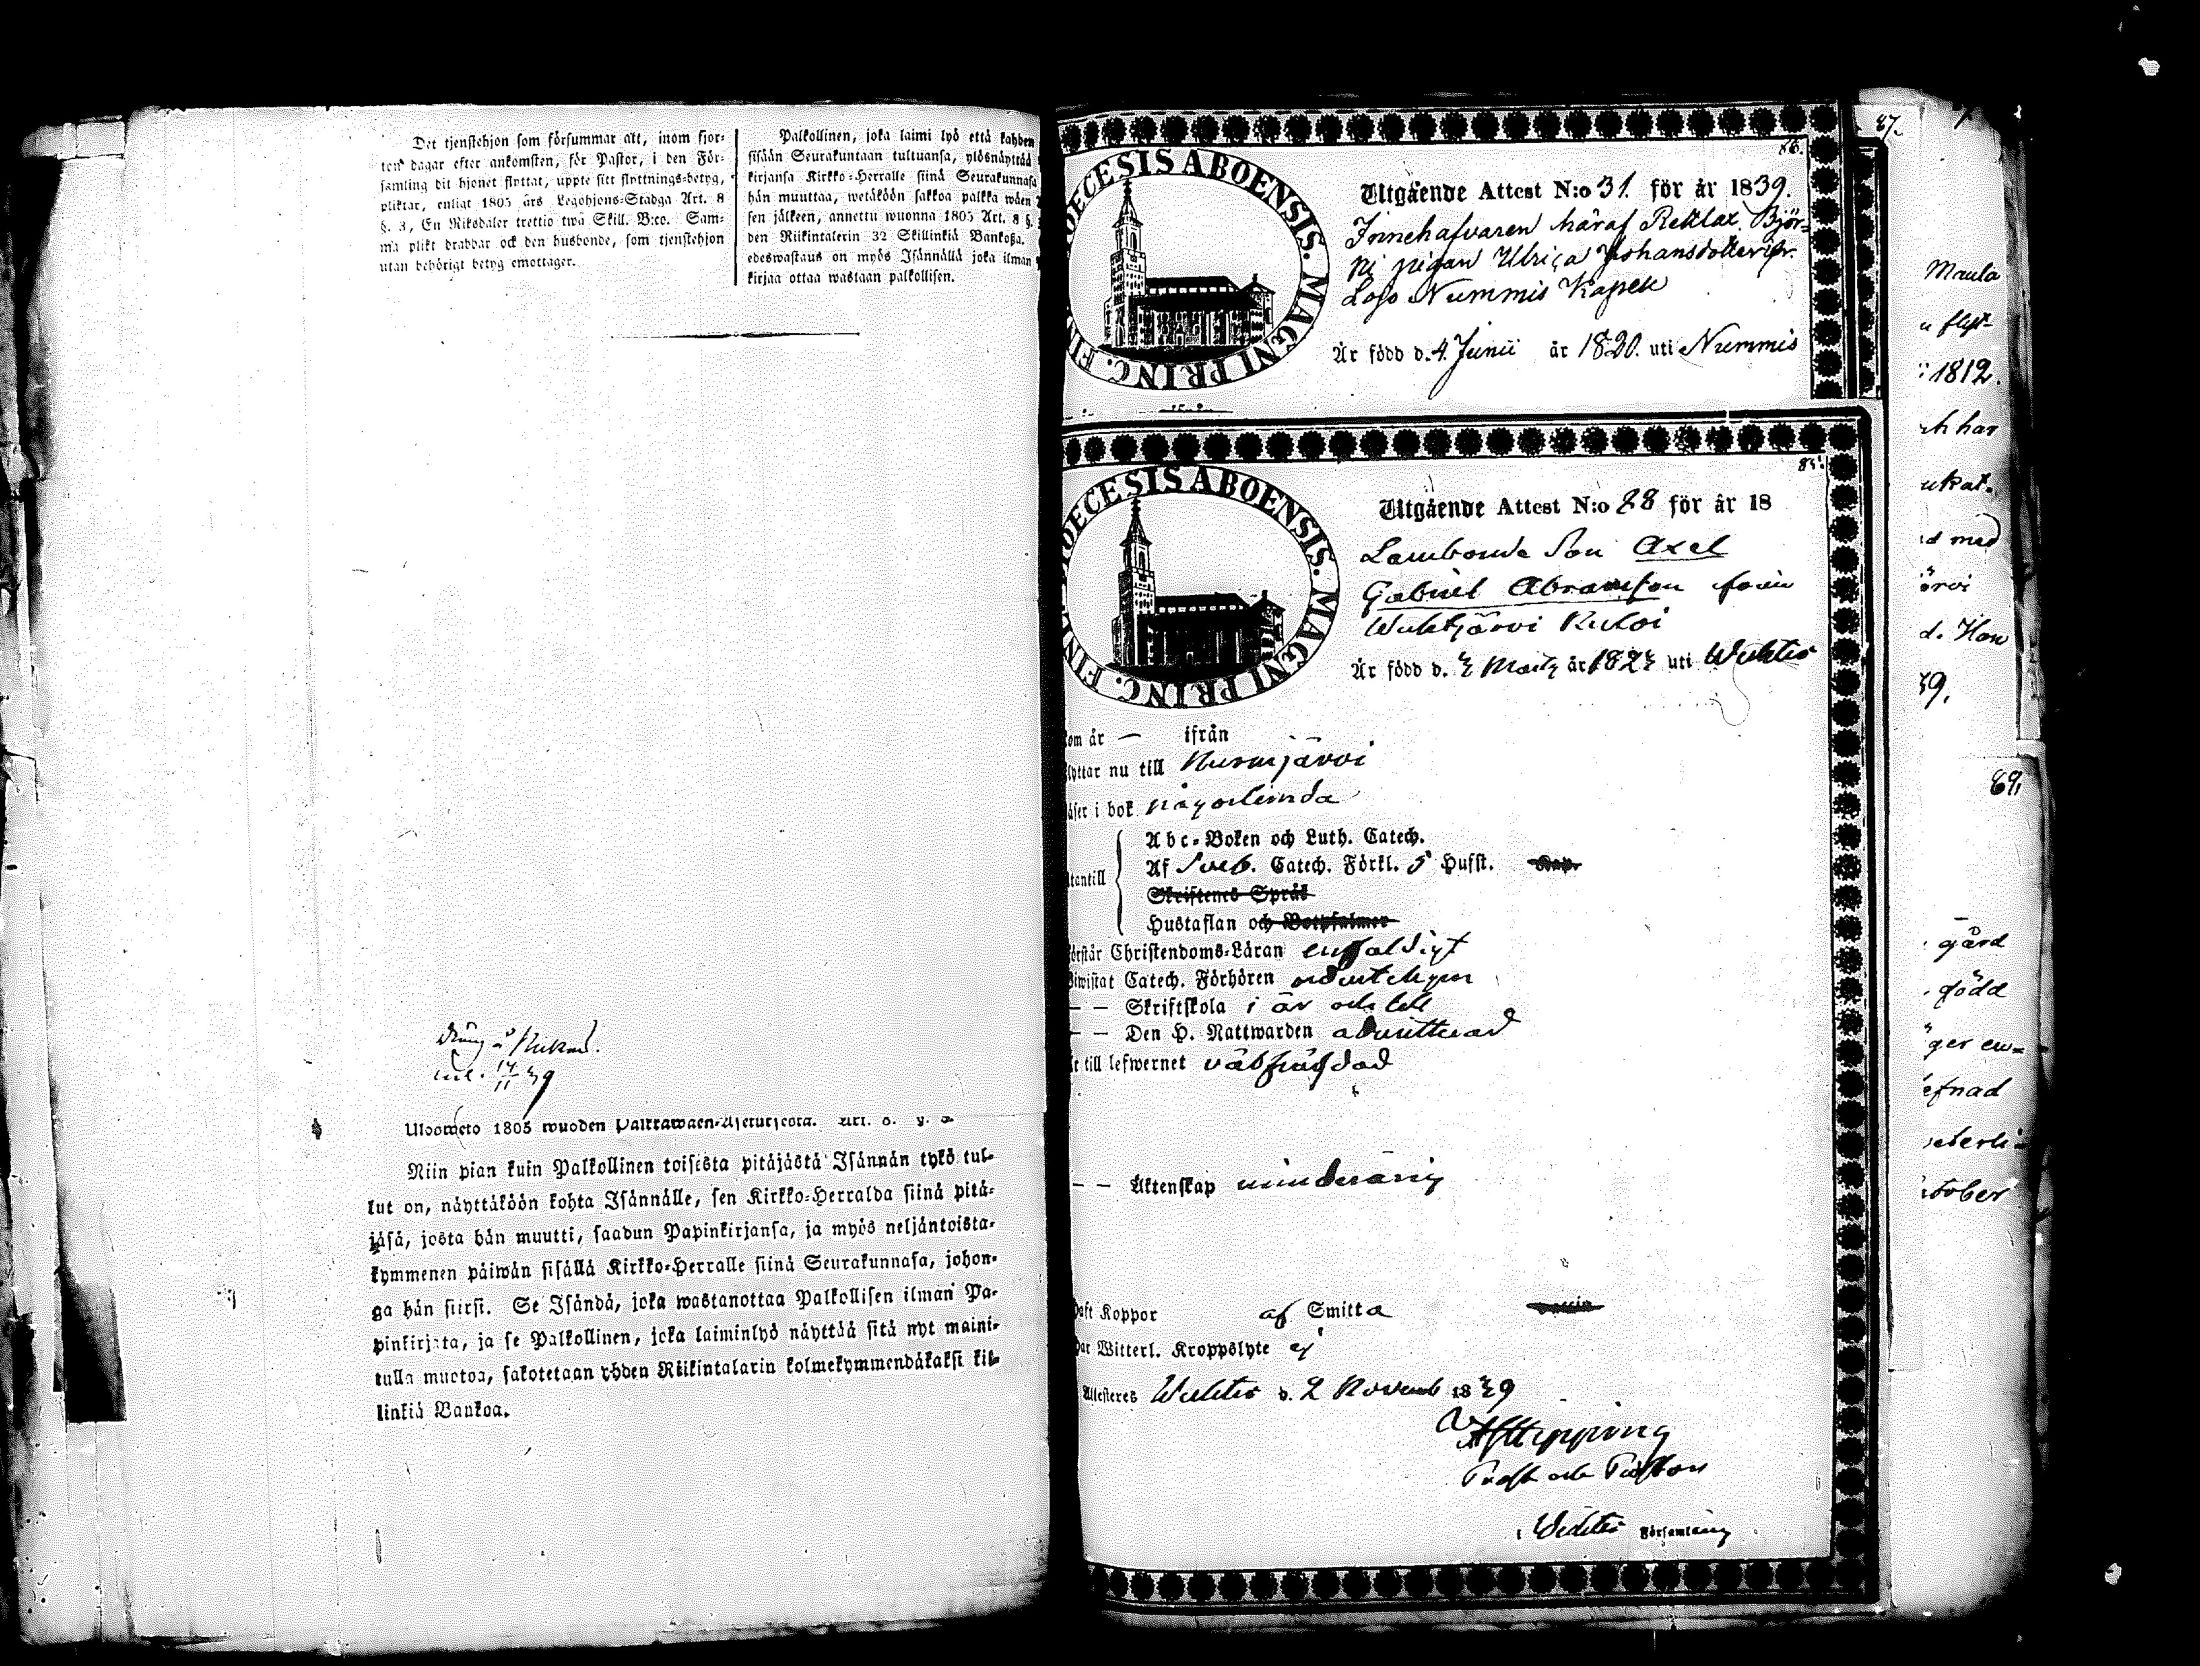 Det tjenstehjon som försummar att, inom fjor-
ton dagar efter ankomsten, för Pastor, i den För-
samling dit hjonet flyttat, uppte sitt flyttnings-betyg,
pliktar, enligt 1805 års Legohjons-Stadga Art. 8
§. 3, En Riksdaler trettio twå Skill. B:co. Sam-
ma plikt drabbar ock den husbonde, som tjenstehjon
utan behörigt betyg emottager.
Palkollinen, joka laimi lyö että kahden
sisään Seurakuntaan tultuansa, ylösnäyttää
kirjansa Kirkko-Herralle siinä Seurakunnasa
hän muuttaa, wetäköön sakkoa palkka wäen
sen jälkeen, annettu wuonna 1805 Art. 8 §.
den Riikintalerin 32 Skillinkiä Bankoßa.
edeswastaus on myös Isännällä joka ilman
kirjaa ottaa wastaan palkollisen.
14
11 39
1805 wuoden
Niin pian kuin Palkollinen toisesta pitäjästä Isännän tykö tul-
lut on, näyttäköön kohta Isännälle, sen Kirkko-Herralda siinä pitä-
jäsä, josta hän muutti, saadun Papinkirjansa, ja myös neljäntoista-
kymmenen päiwän sisällä Kirkko-Herralle siinä Seurakunnasa, johon-
ga hän siirsi. Se Isändä, joka wastanottaa Palkollisen ilman Pa-
pinkirjata, ja se Palkollinen, joka laiminlyö näyttää sitä nyt maini-
tulla muotoa, sakotetaan yhden Riikintalarin kolmekymmendäkaksi kil-
linkiä Bankoa.
86.
DIOECESIS ABOENSIS. MAGNI PRINC. FIN
Utgående Attest N:o 31. för år 1839.
Innehafvaren häraf Reklax Björ-
ni pigan Ulrica Johansdotter fr.
Lojo Nummis Kapell
Är född d. 4 Junii år 1820. uti Nummis
85.
DIOECESIS ABOENSIS. MAGNI PRINC. FIN
Utgående Attest N:o 28 för år 18
Lambonde Son Axel
Gabriel Abramson från
Wichtjärvi
Är född d. 3 Martz år 1823 uti Wichtis
om år — ifrån
lyttar nu till Nurmijärvi
äser i bok någorlunda
tantill
Abc-Boken och Luth. Catech.
Af Sveb. Catech. Förkl. 5 Hufst.
Skriftenes Språk
Hustaflan och Botpsalmer
örstår Christendoms-Läran enfaldigt
iwistat Catech. Förhören ordentligen
— — Skriftskola i år och till
— — Den H. Nattwarden admitterad
r till lefwernet välfräjdad
— — Äktenskap minderårig
aft Koppor af Smitta
ar Witterl. Kroppslyte ej
Attesteres Wichtis d. 2 Novemb 1839
Prost och Pastor
i Wichtis Församling
87.
Maula
flyt-
1812.
ch har
ukat.
med
örvi
d. Hon
39.
89.
gård
född
ger en-
efnad
october